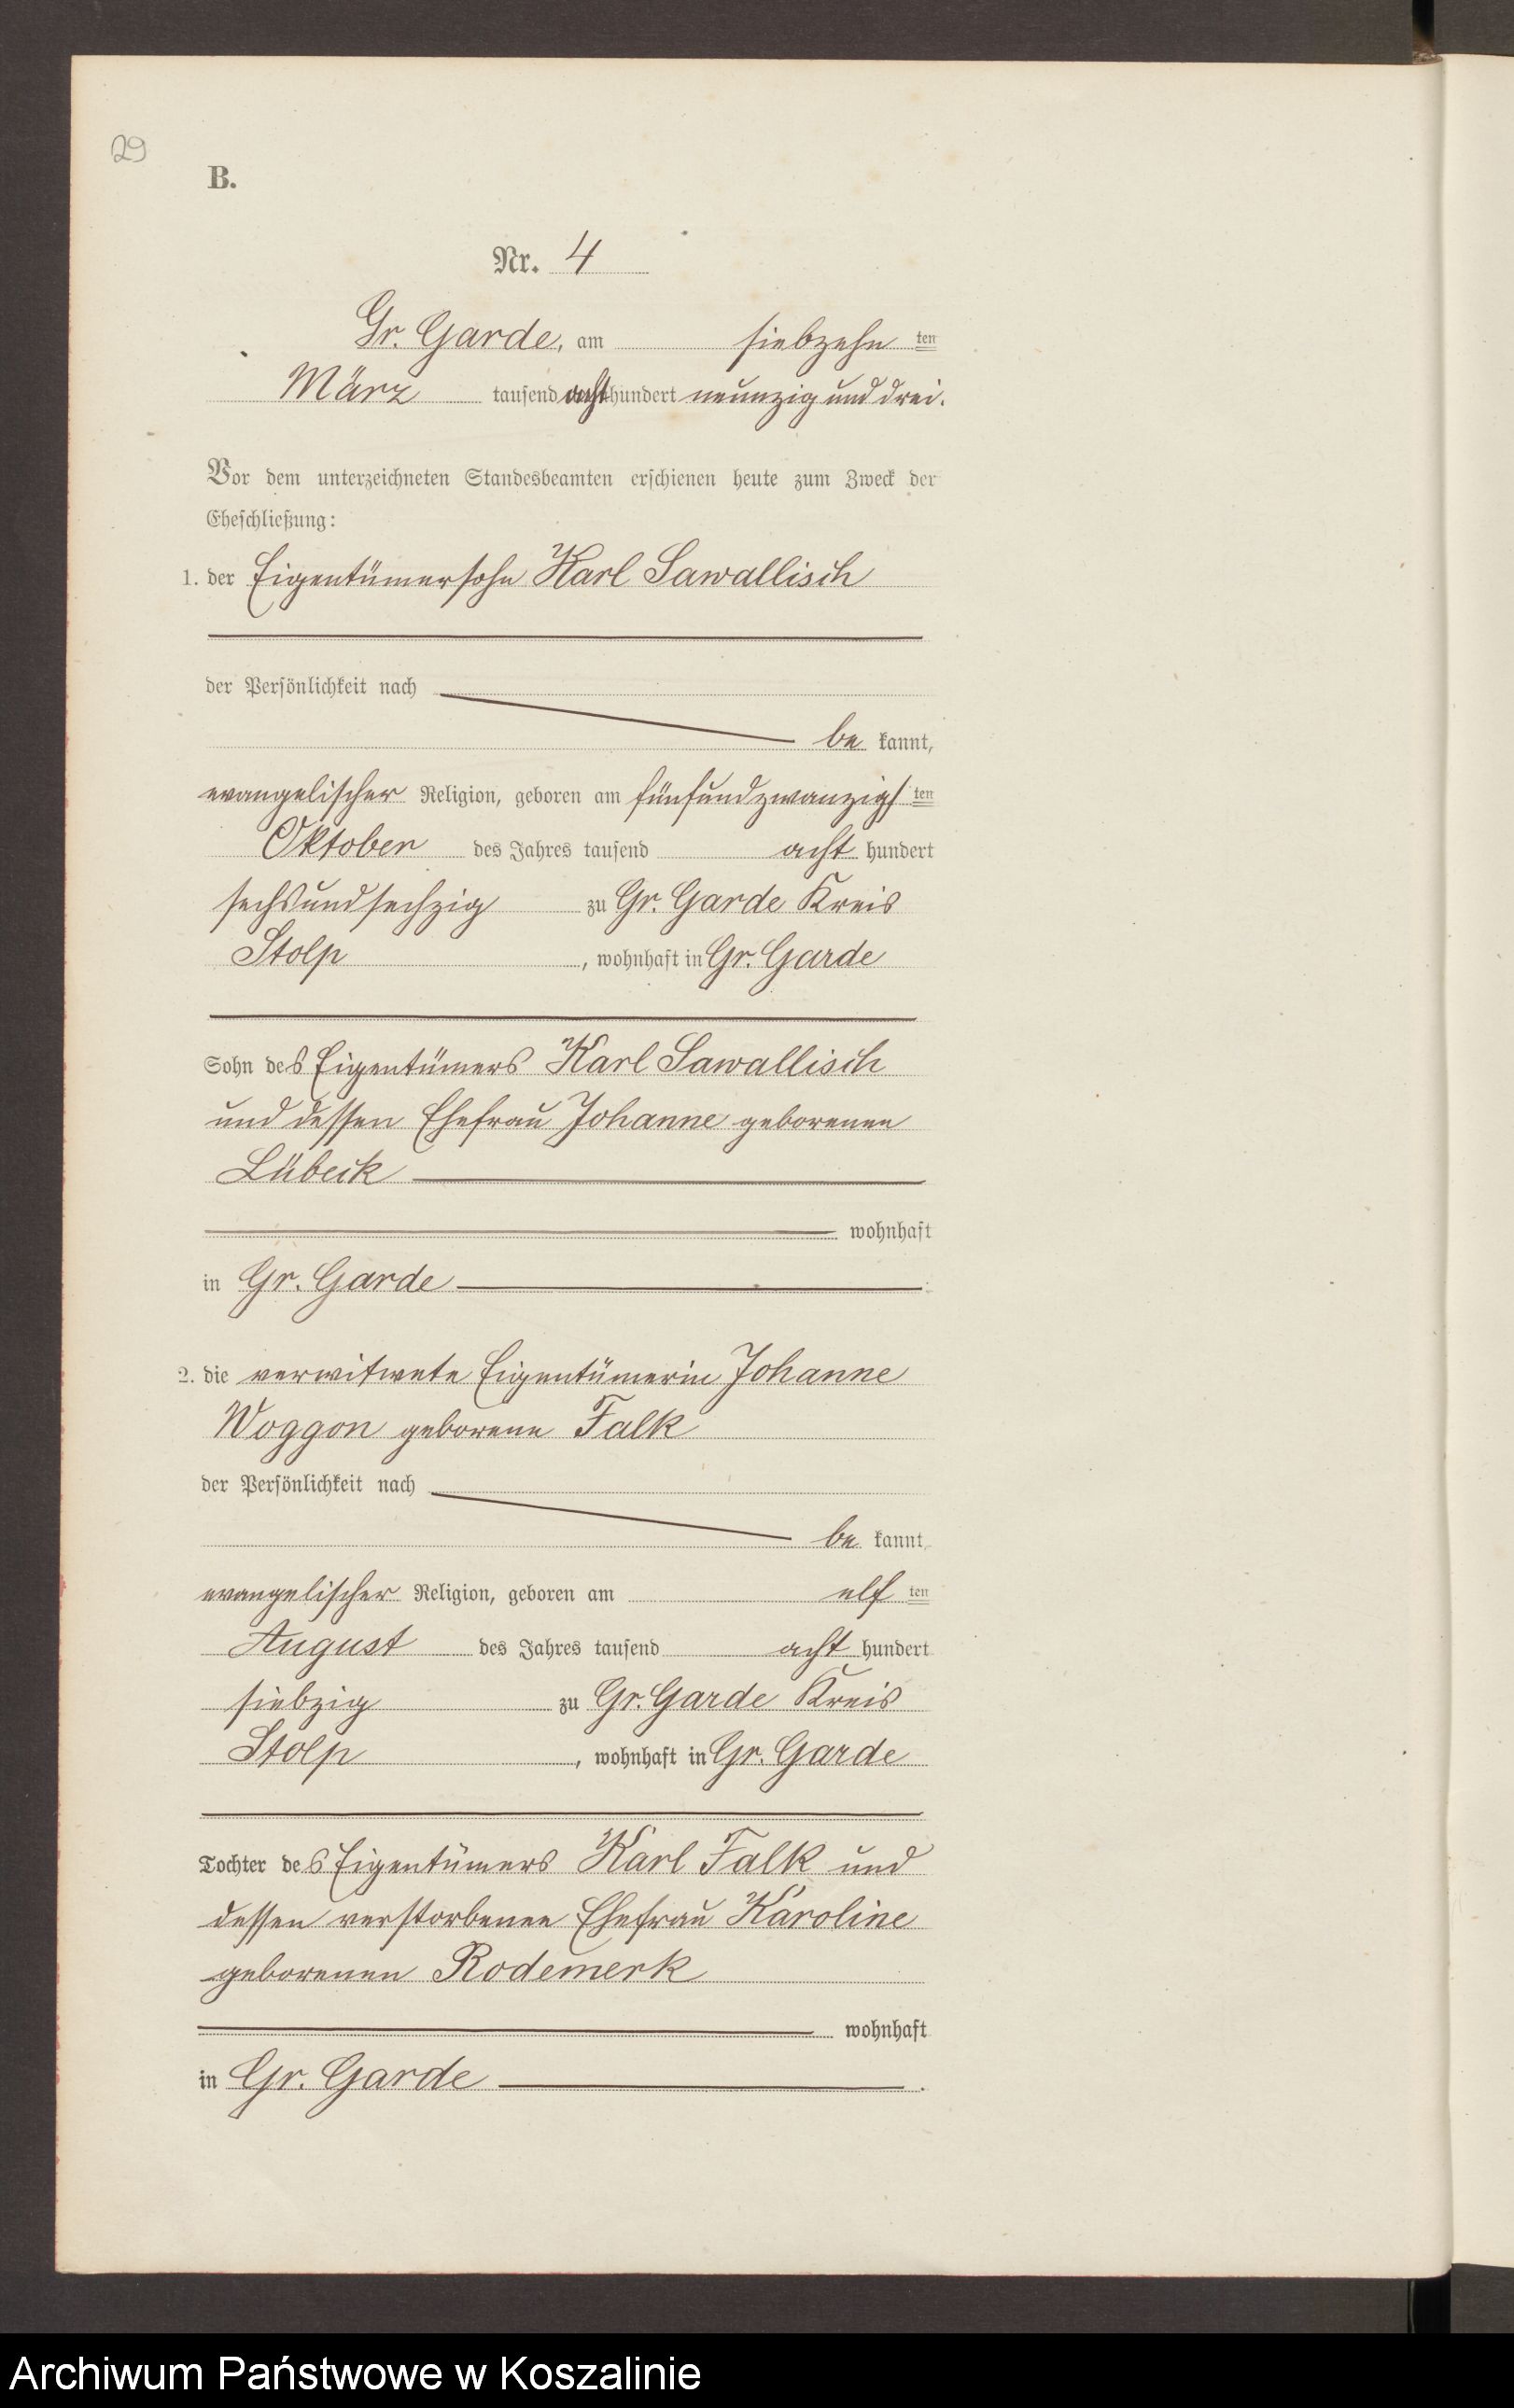 29
B.
Nr. 4
Gr. Garde, am siebzehn ten
März tausend acht hundert neunzig und drei.
Vor dem unterzeichneten Standesbeamten erschienen heute zum Zweck der
Eheschließung:
1. der Eigentümersohn Karl Sawallisch
der Persönlichkeit nach
be kannt,
evangelischer Religion, geboren am fünfundzwanzigs ten
Oktober des Jahres tausend acht hundert
sechsundsechzig zu Gr. Garde Kreis
Stolp, wohnhaft in Gr. Garde
Sohn des Eigentümers Karl Sawallisch
und dessen Ehefrau Johanne geborenen
Lübeck
wohnhaft
in Gr. Garde
2. die verwitwete Eigentümerin Johanne
Woggon geborene Falk
der Persönlichkeit nach
be kannt,
evangelischer Religion, geboren am elf ten
August des Jahres tausend acht hundert
siebzig zu Gr. Garde Kreis
Stolp, wohnhaft in Gr. Garde
Tochter des Eigentümers Karl Falk und
dessen verstorbenen Ehefrau Karoline
geborenen Rodemerk
wohnhaft
in Gr. Garde.
Archiwum Państwowe w Koszalinie